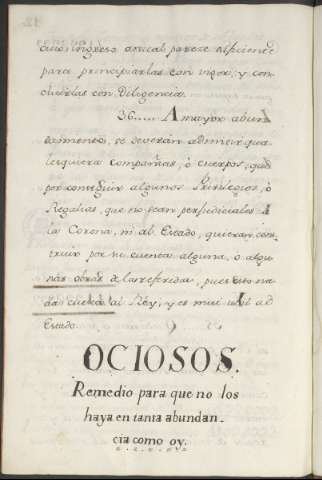 cuio ingreso anual parece suficiente
para principiarlas con vigor, y con-
cluirlas con Diligencia.
36..... A mayor abun
damiento, se deverán admitir qua
lesquiera Compañias, ó cuerpos, que
por conseguir algunos Privilegios, ó
Regalias, que no sean perjudiciales á
la Corona, ni al Estado, quieran cons
truir por su cuenta alguna, ó algu
nas obras de las referidas, pues esto na
da cuesta al Rey, y es mui util al
Estado
OCIOSOS.
Remedio para que no los
haya en tanta abundan-
cia como oy.